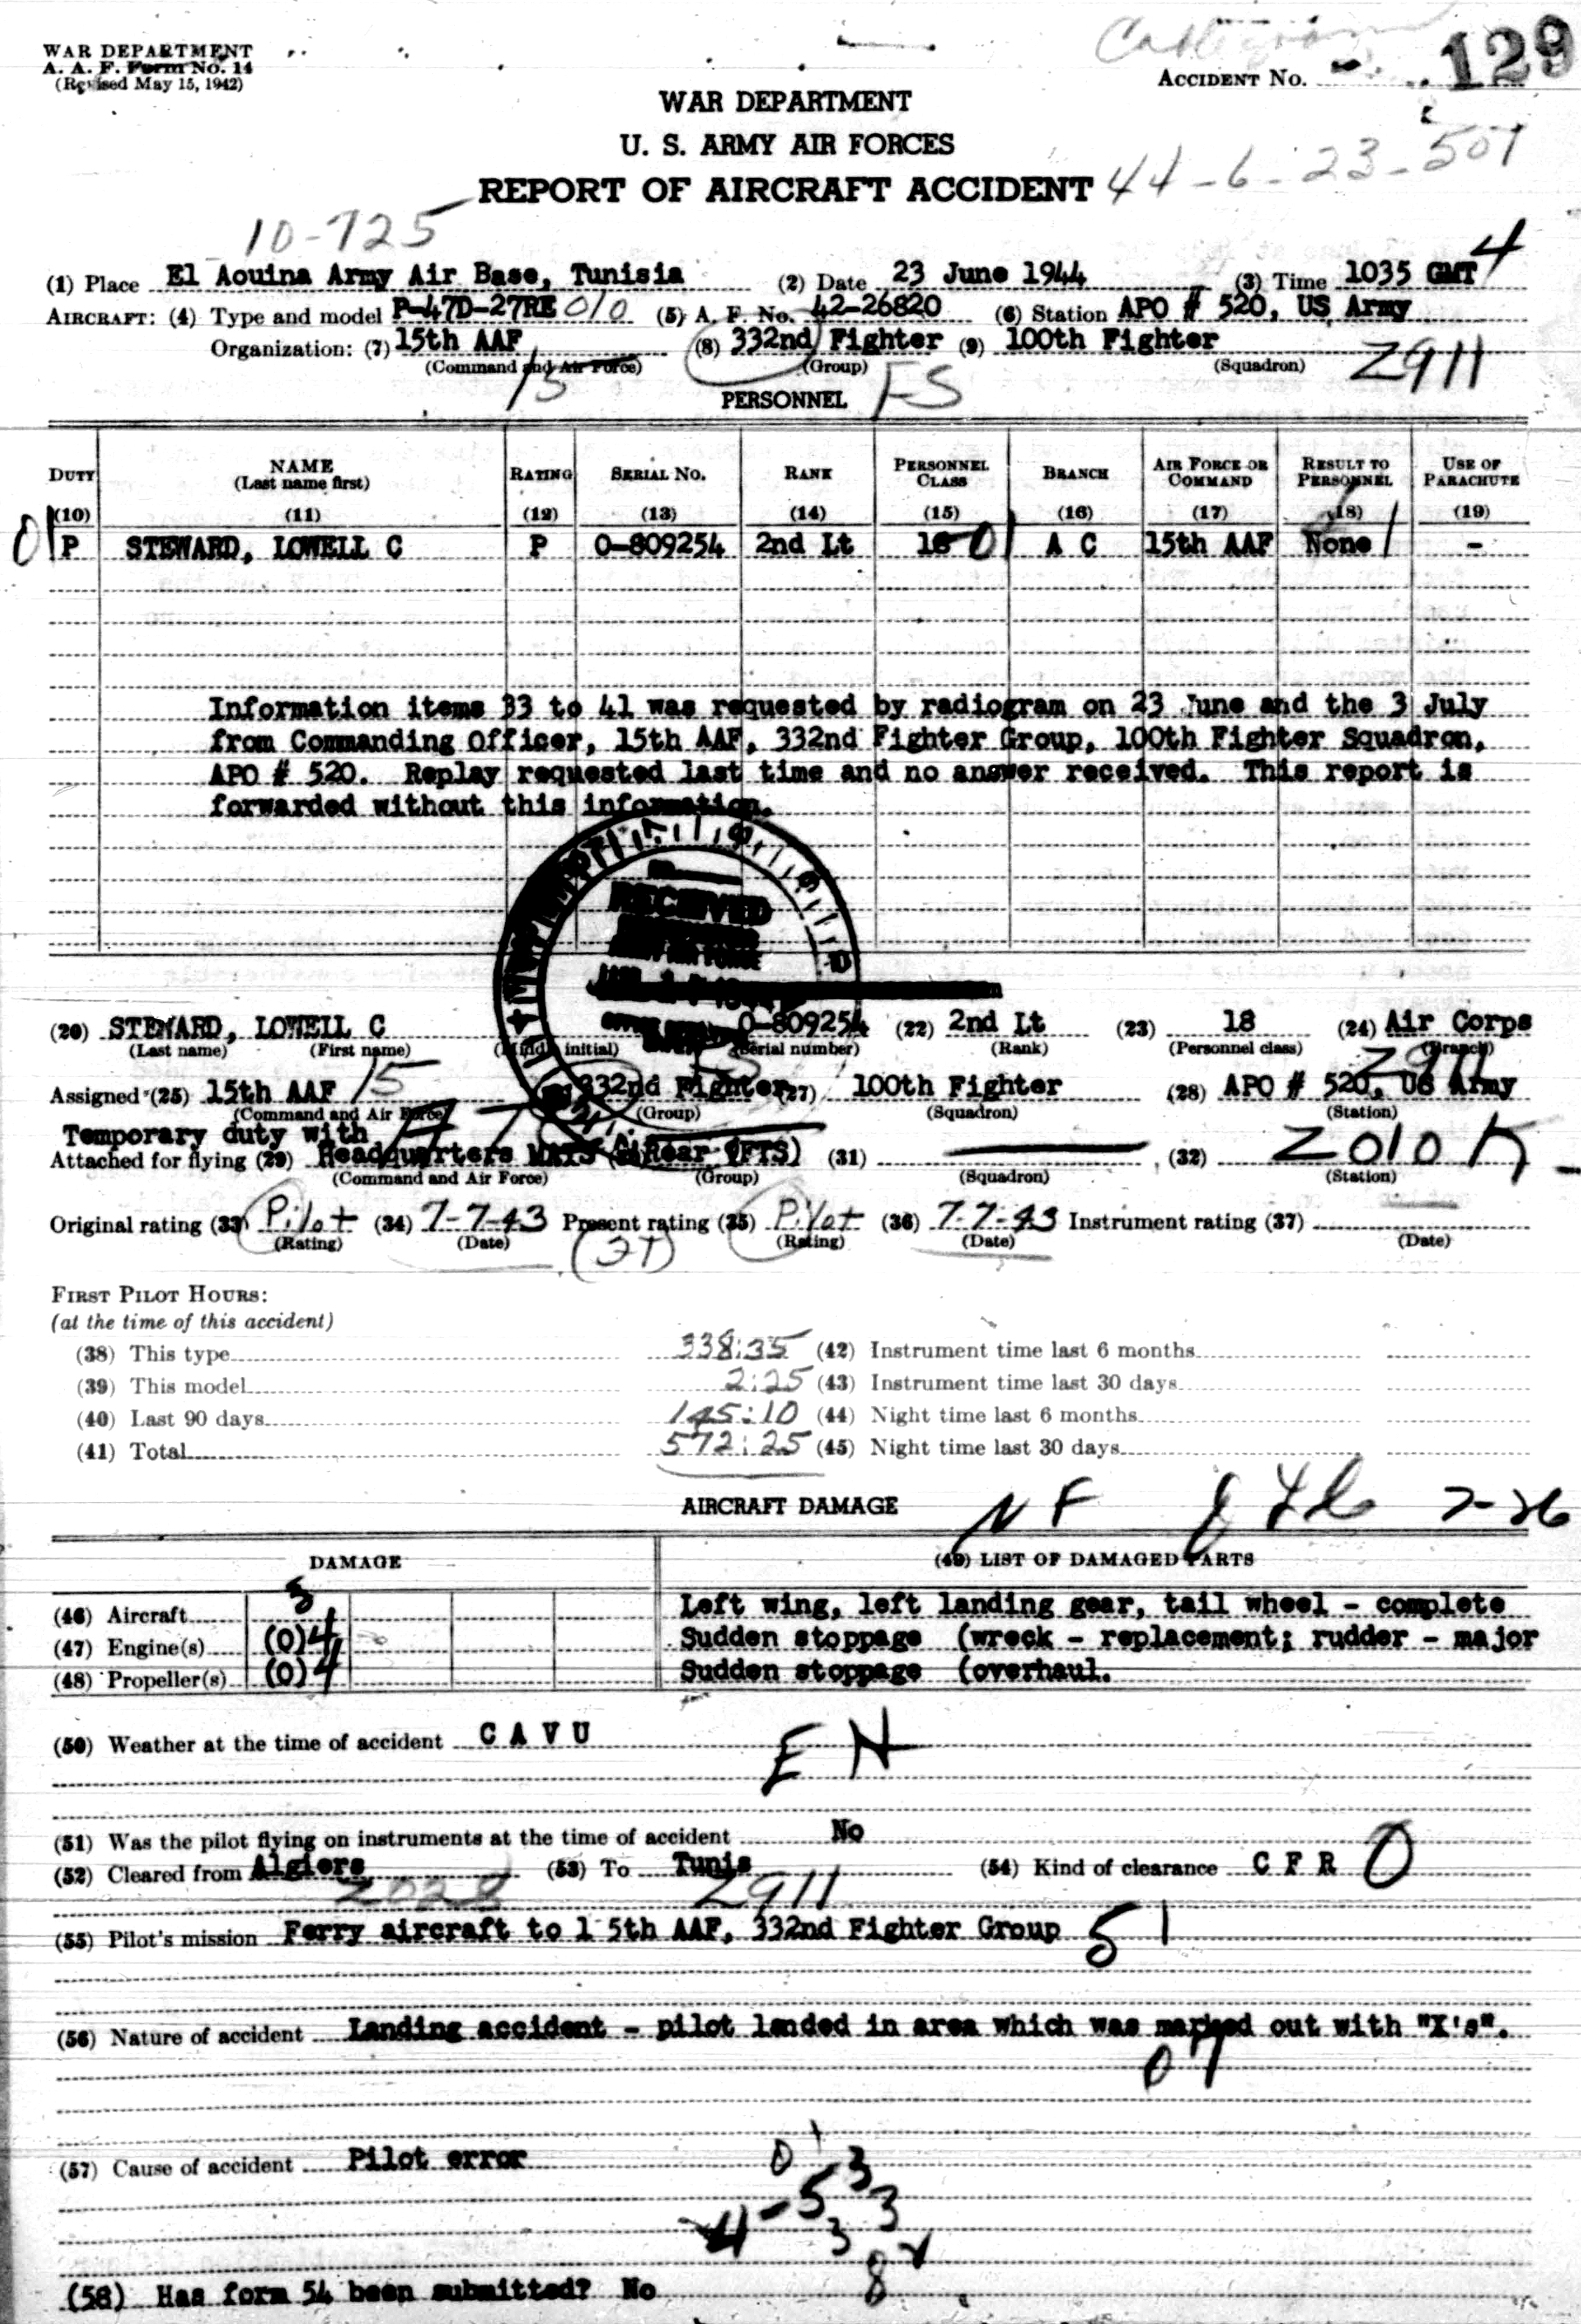 WAR DEPARTMENT
A. A. F. Form No. 14
(Revised May 15, 1942)
ACCIDENT No. 129
WAR DEPARTMENT
U. S. ARMY AIR FORCES
REPORT OF AIRCRAFT ACCIDENT 44-6-23-507
10-725
(1) Place El Aouina Army Air Base, Tunisia (2) Date 23 June 1944 (3) Time 1035 GMT 4
AIRCRAFT: (4) Type and model P-47D-27RE 010 (5) A. F. No. 42-26820 (6) Station APO # 520, US Army
Organization: (7) 15th AAF (8) 332nd Fighter (9) 100th Fighter
(Command and Air Force) (Group) (Squadron) Z911
15 FS
PERSONNEL
DUTY NAME (Last name first) RATING SERIAL NO. RANK PERSONNEL CLASS BRANCH AIR FORCE OR COMMAND RESULT TO PERSONNEL USE OF PARACHUTE
(10) (11) (12) (13) (14) (15) (16) (17) (18) (19)
01 P STEWARD, LOWELL C P 0-809254 2nd Lt 18 01 A C 15th AAF None 1 -
Information items 33 to 41 was requested by radiogram on 23 June and the 3 July
from Commanding Officer, 15th AAF, 332nd Fighter Group, 100th Fighter Squadron,
APO # 520. Replay requested last time and no answer received. This report is
forwarded without this information.
RECEIVED
(20) STEWARD, LOWELL C 0-809254 (22) 2nd Lt (23) 18 (24) Air Corps
(Last name) (First name) (Middle initial) (Serial number) (Rank) (Personnel class) (Branch)
Z911
Assigned (25) 15th AAF 15 332nd Fighter (27) 100th Fighter (28) APO # 520, US Army
(Command and Air Force) (Group) (Squadron) (Station)
Temporary duty with
Attached for flying (29) Headquarters MATS (FTS) (31) (32) Z010 K
(Command and Air Force) (Group) (Squadron) (Station)
Original rating (33) Pilot (34) 7-7-43 Present rating (35) Pilot (36) 7-7-43 Instrument rating (37)
(Rating) (Date) (Rating) (Date) (Date)
FIRST PILOT HOURS:
(at the time of this accident)
(38) This type 338:35 (42) Instrument time last 6 months
(39) This model 2:25 (43) Instrument time last 30 days
(40) Last 90 days 145:10 (44) Night time last 6 months
(41) Total 572:25 (45) Night time last 30 days
AIRCRAFT DAMAGE NF
DAMAGE (49) LIST OF DAMAGED PARTS
(46) Aircraft 3 Left wing, left landing gear, tail wheel - complete
(47) Engine(s) (0) 4 Sudden stoppage (wreck - replacement; rudder - major
(48) Propeller(s) (0) 4 Sudden stoppage (overhaul.
(50) Weather at the time of accident C A V U
E H
(51) Was the pilot flying on instruments at the time of accident No
(52) Cleared from Algiers (53) To Tunis (54) Kind of clearance C F R 0
Z028 Z911
(55) Pilot's mission Ferry aircraft to 1 5th AAF, 332nd Fighter Group 51
(56) Nature of accident Landing accident - pilot landed in area which was marked out with "X's".
07
(57) Cause of accident Pilot error
(58) Has form 54 been submitted? No